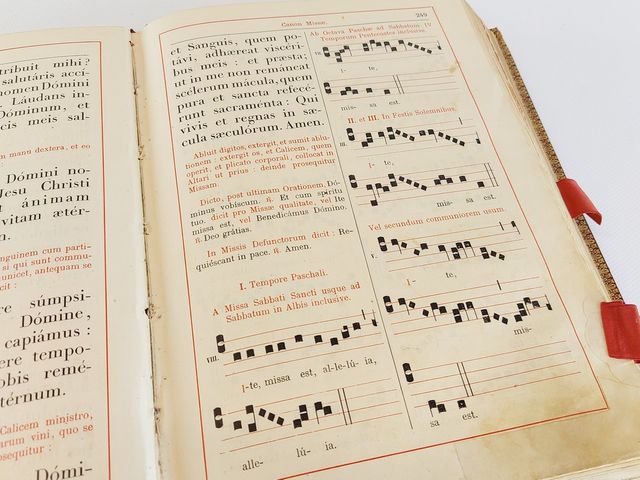 tribuit mihi?
salutáris accí-
nomen Dómini
Láudans in-
Dóminum, et
cis meis sal-
am manu dextera, et eo
Dómini no-
Jesu Christi
ánimam
vitam ætér-
n.
anguinem cum parti-
si qui sunt commu-
unicet, antequam se
cit :
re súmpsi-
Dómine,
capiámus :
ere tempo-
obis remé-
térnum.
Calicem ministro,
arum vini, quo se
osequitur :
Dómi-
Canon Missæ.
249
et Sanguis, quem po-
távi, adhǽreat viscéri-
bus meis : et præsta;
ut in me non remáneat
scélerum mácula, quem
pura et sancta refecé-
runt sacraménta : Qui
vivis et regnas in sæ-
cula sæculórum. Amen.
Abluit digitos, extergit, et sumit ablu-
tionem : extergit os, et Calicem, quem
operit, et plicato corporali, collocat in
Altari ut prius : deinde prosequitur
Missam.
Dicto, post ultimam Orationem, Dó-
minus vobíscum. ℟. Et cum spíritu
tuo. dicit pro Missæ qualitate, vel Ite
missa est, vel Benedicámus Dómino.
℟. Deo grátias.
In Missis Defunctorum dicit : Re-
quiéscant in pace. ℟. Amen.
I. Tempore Paschali.
A Missa Sabbati Sancti usque ad
Sabbatum in Albis inclusive.
VIII.
I-te, missa est, al-le-lú- ia,
alle- lú- ia.
Ab Octava Paschæ ad Sabbatum IV
Temporum Pentecostes inclusive.
VII.
I- te,
mis- sa est.
II. et III. In Festis Solemnibus.
I- te,
mis- sa est.
Vel secundum communiorem usum.
V.
I- te,
mis-
sa est.